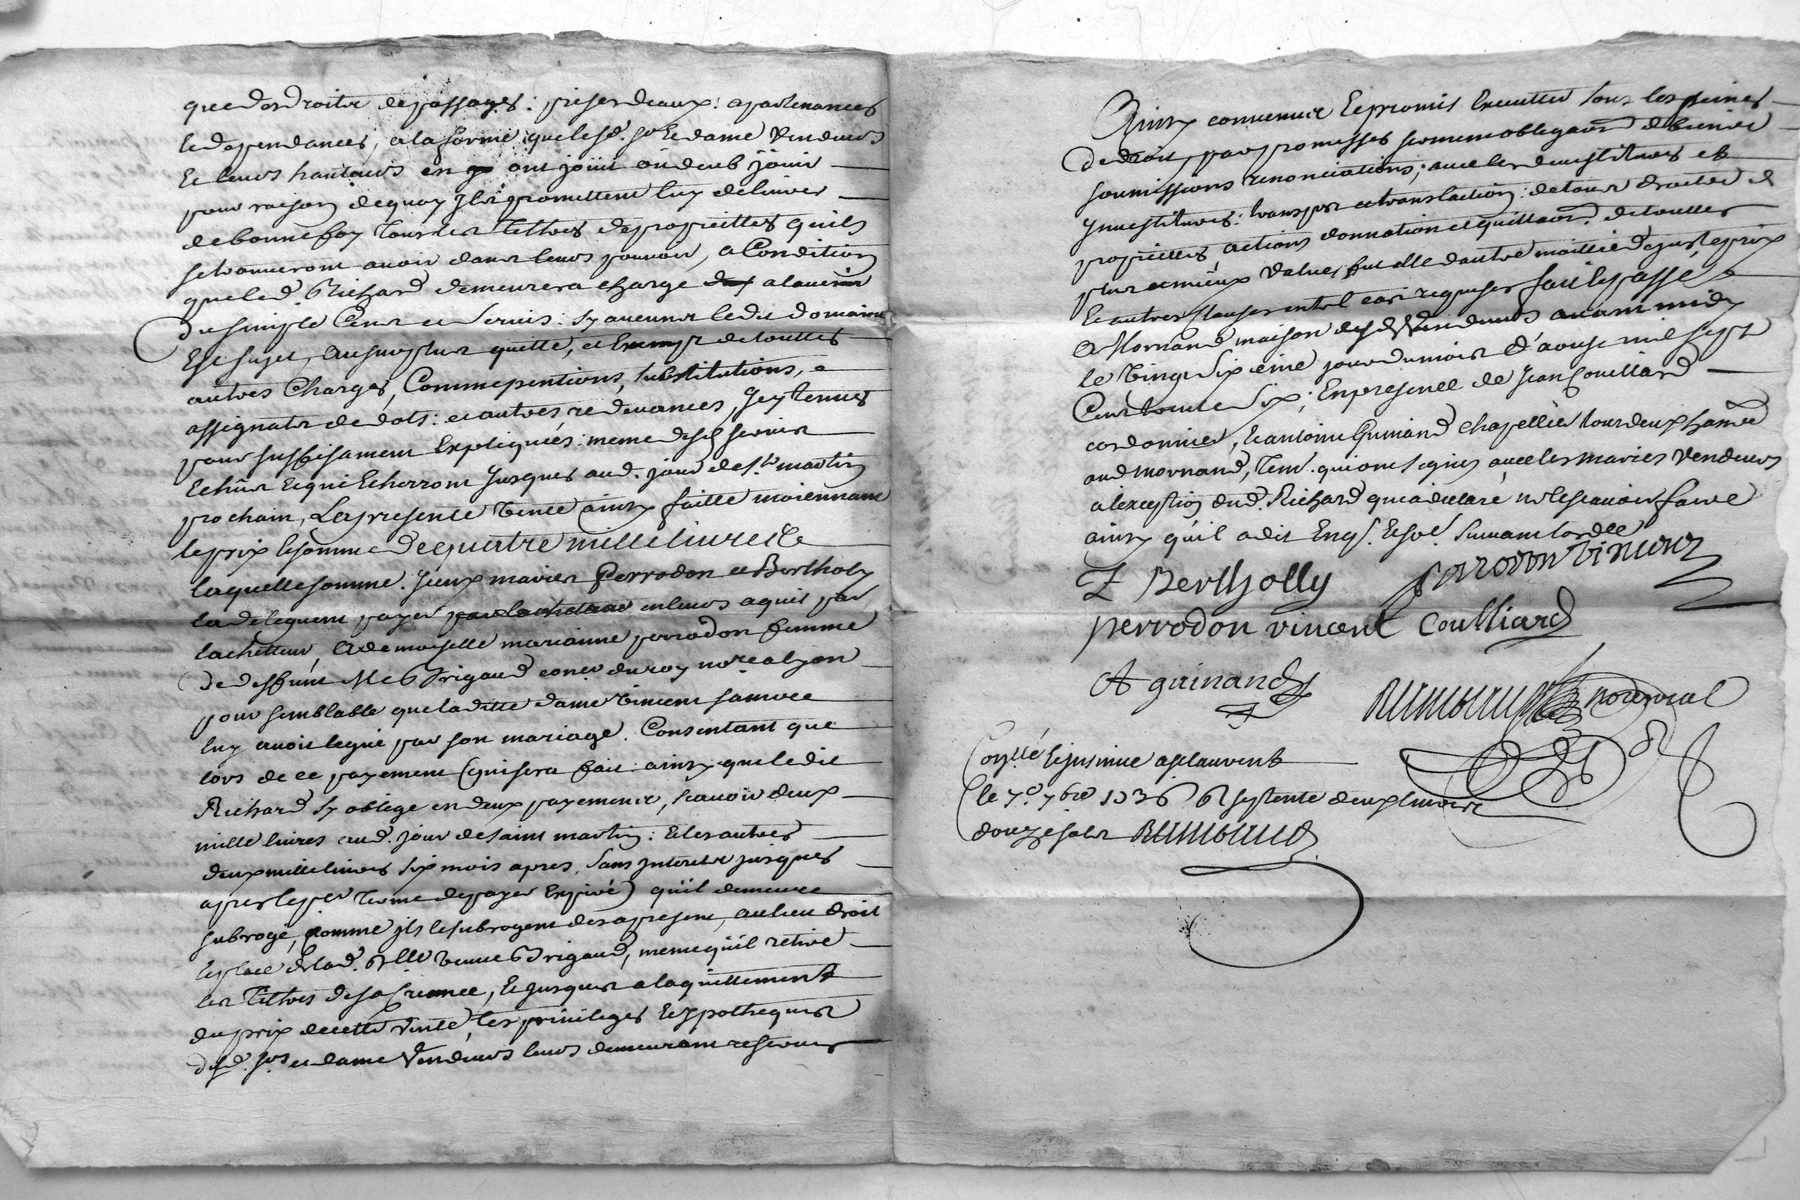 que des droits de passages : prises deaux : apartenances
et dependances, a la forme que lesd. sr. et dame vendeurs
et leurs hauteurs en ont joüit ou deub joüir
pour raison de quoy ils promettent luy delivrer
de bonne foy tous les tiltres de proprietés quils
se trouveront avoir dans leurs pouvoir, a Condition
que led. Richard demeurera chargé a lavenir
du simple Cens et servis : sy aucuns ledit domaine
Est sujet, au surplus quitte, et Exempt de touttes
autres Charges, Comme pentions, substitutions,
assignats de dots : et autres redevances, Icy tenues
pour suffisament Expliquées : meme desd. servis
Echûs et qui Echerront jusques aud. jour de st. martin
prochain, La presente vente ainsy faitte moiennant
le prix et somme de quatre mille livres
laquelle somme, Iceux mariés Perrodon et Bertholy
la deleguent payer en leurs aquit par
lachetteur a demoiselle marianne perrodon femme
de deffunt Me Brigaud coner du roy no.re a lyon
pour semblable que laditte dame Vincent sa mere
luy avoit legué par son mariage. Consentant que
lors de ce payement (qui sera fait : ainsy que ledit
Richard sy oblige en deux payements, scavoir deux
mille livres aud. jour de saint martin : et les autres
deux mille livres six mois apres, sans interets jusques
apres le per terme de payer Expiré) qu'il demeure
subrogé, comme ils le subrogent des apresent, au lieu droit
et place de lad. dlle veuve Brigaud, meme qu'il retire
les tiltres de sa Creance, et jusques a laquittement
du prix de cette vente, les privileges et ypotheques
desd. srs et dame vendeurs leurs demeurant reservés
Ainsy convenu et promis Executter sous les peines
de droit, par promesses serment obligaon de biens
soumissions renonciations ; avec les devestitures et
Investitures : transport et translation : de tous droits de
proprietés actions donnation et quittaon de touttes
plus et mieux values, fut elle d'autre moittié de juste prix
et autres clauses en tel cas requises fait et passé
a Mornand maison desd. Vendeurs avant midy
le Vingt Sixième jour du mois d'aoust mil sept
Cent trente Six ; En presence de Jean Couillard
cordonnier, et antoine Guinand Chapellier tous deux
aud Mornand, tem. qui ont signés avec les mariés Vendeurs
a lexception dud. Richard qui a declaré ne le scavoir faire
ainsy qu'il a dit Enq. et so. suivant lord.ce
F Bertholly perrodon Vincent
perrodon vincent Coulliard
A guinand
not. royal
Con.llé et insinué a st laurent
le 7.e 7bre 1736 R septente deux livres
douze sols